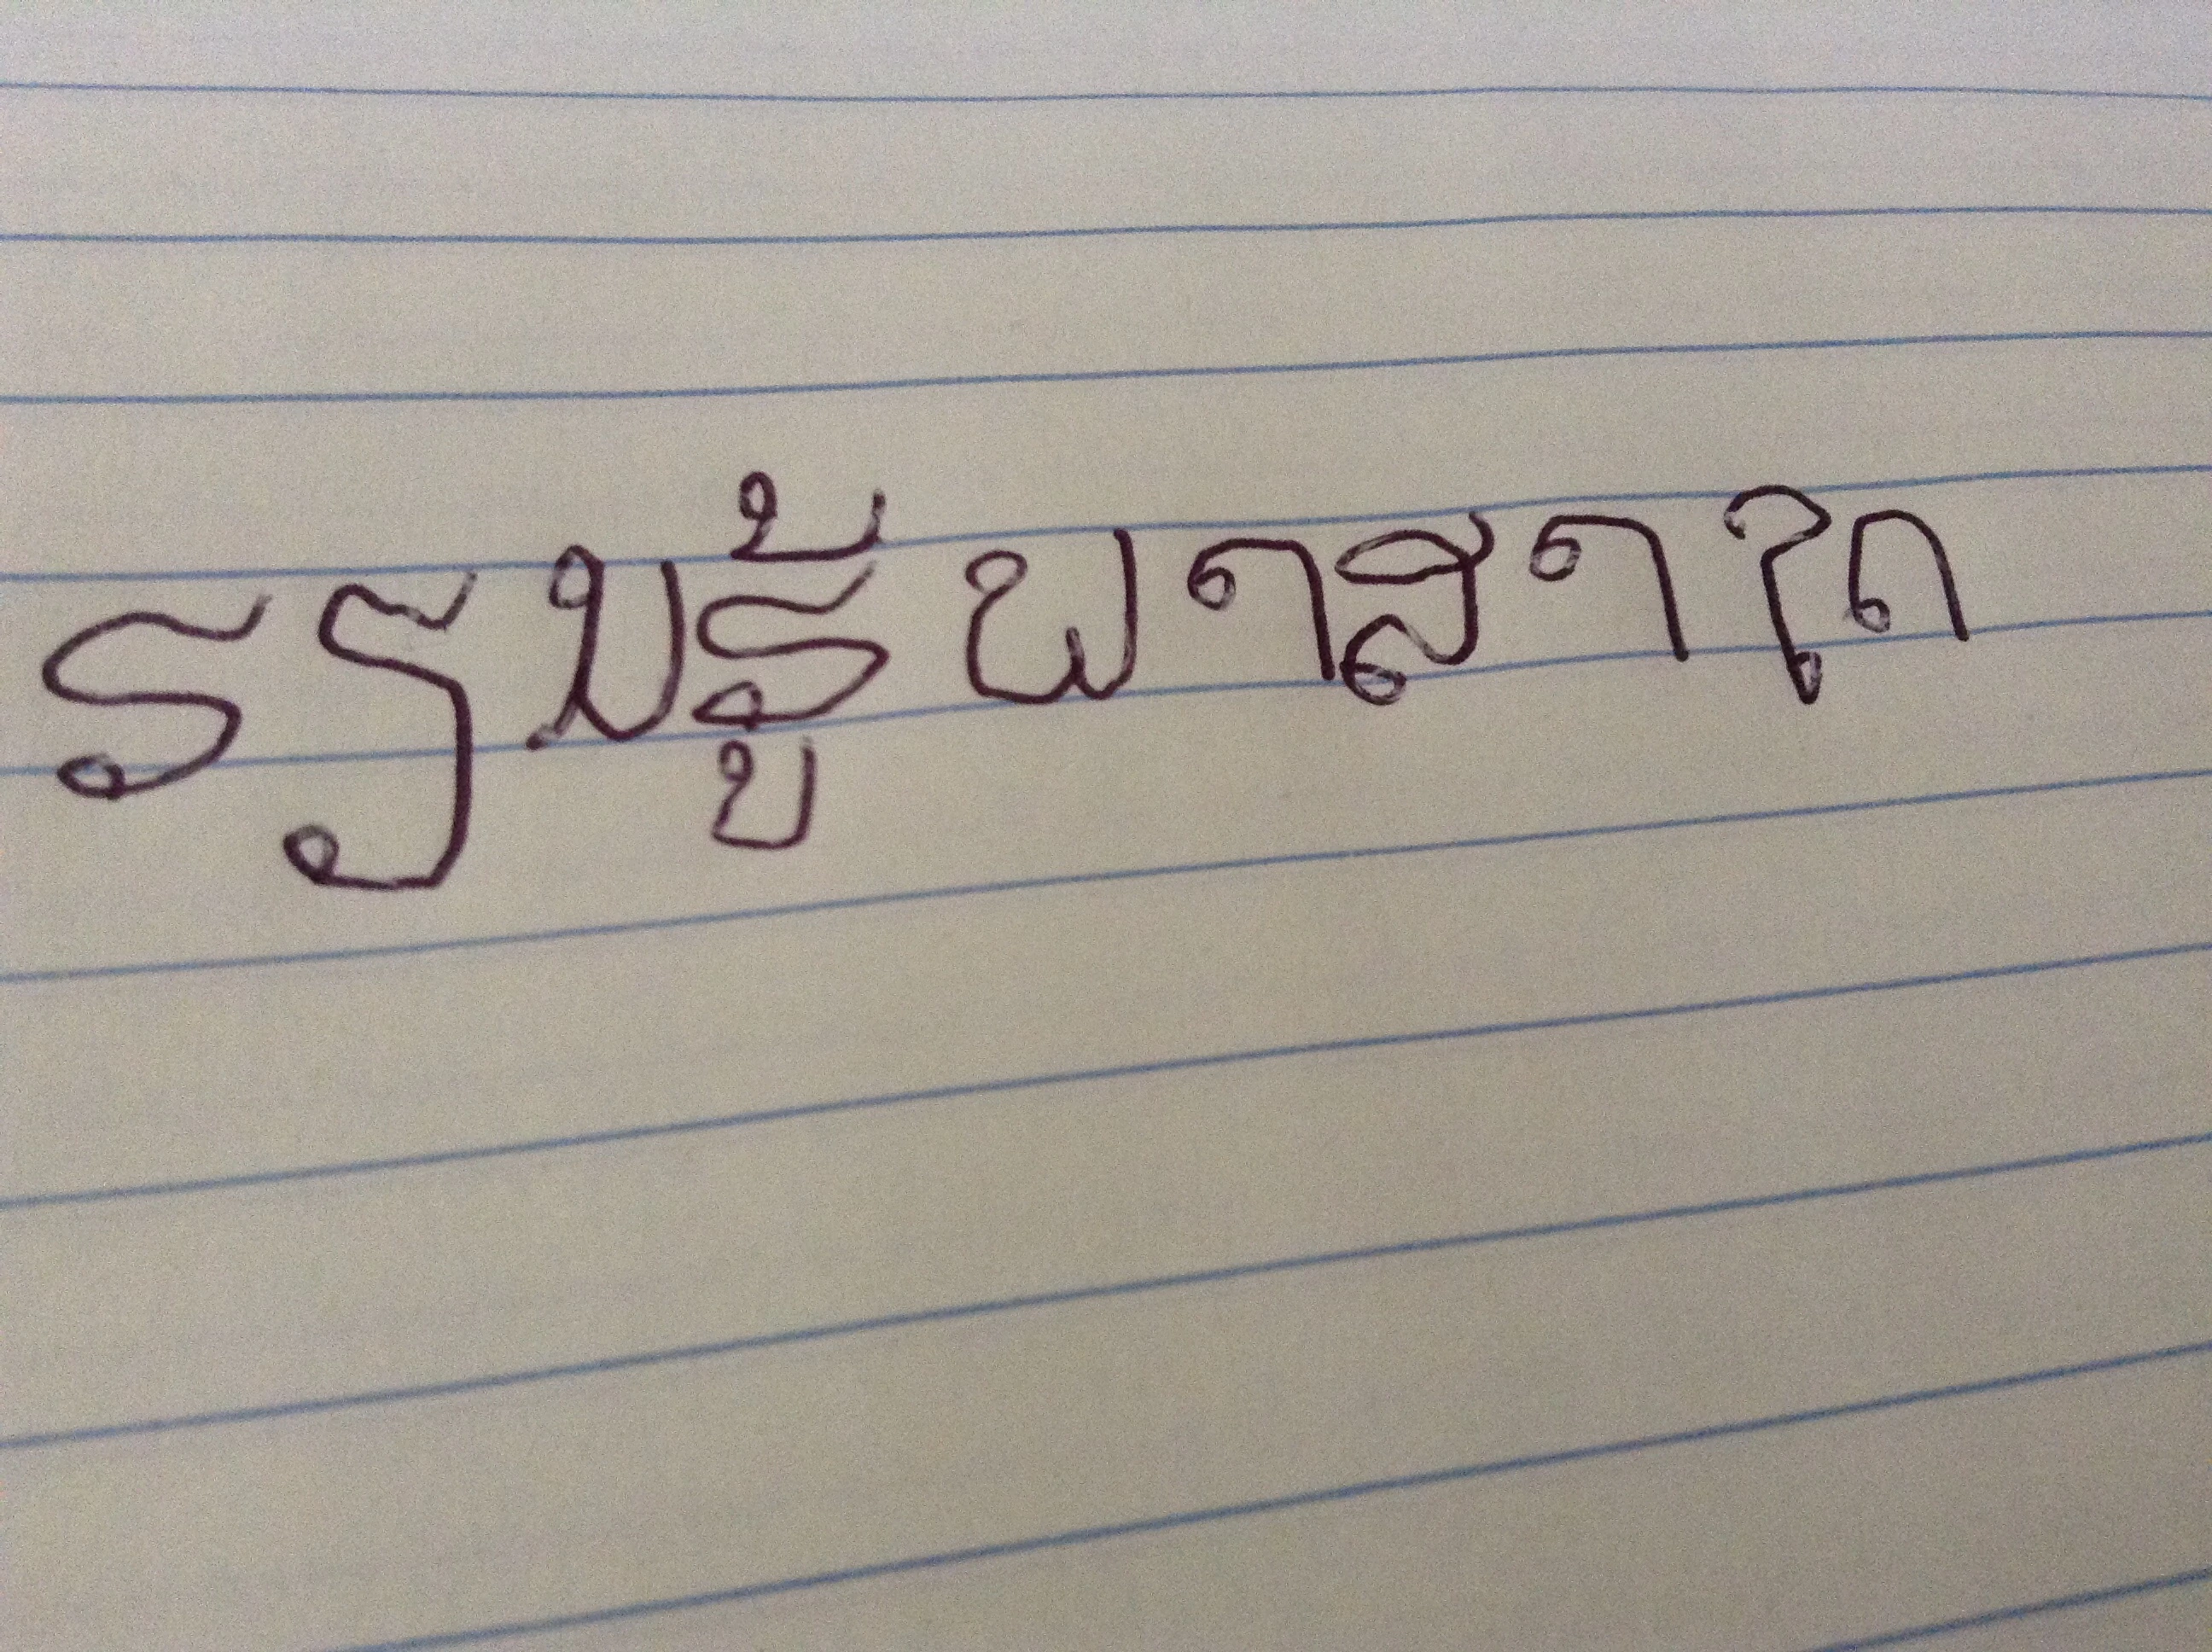 ຮຽນຮູ້ພາສາໃດ